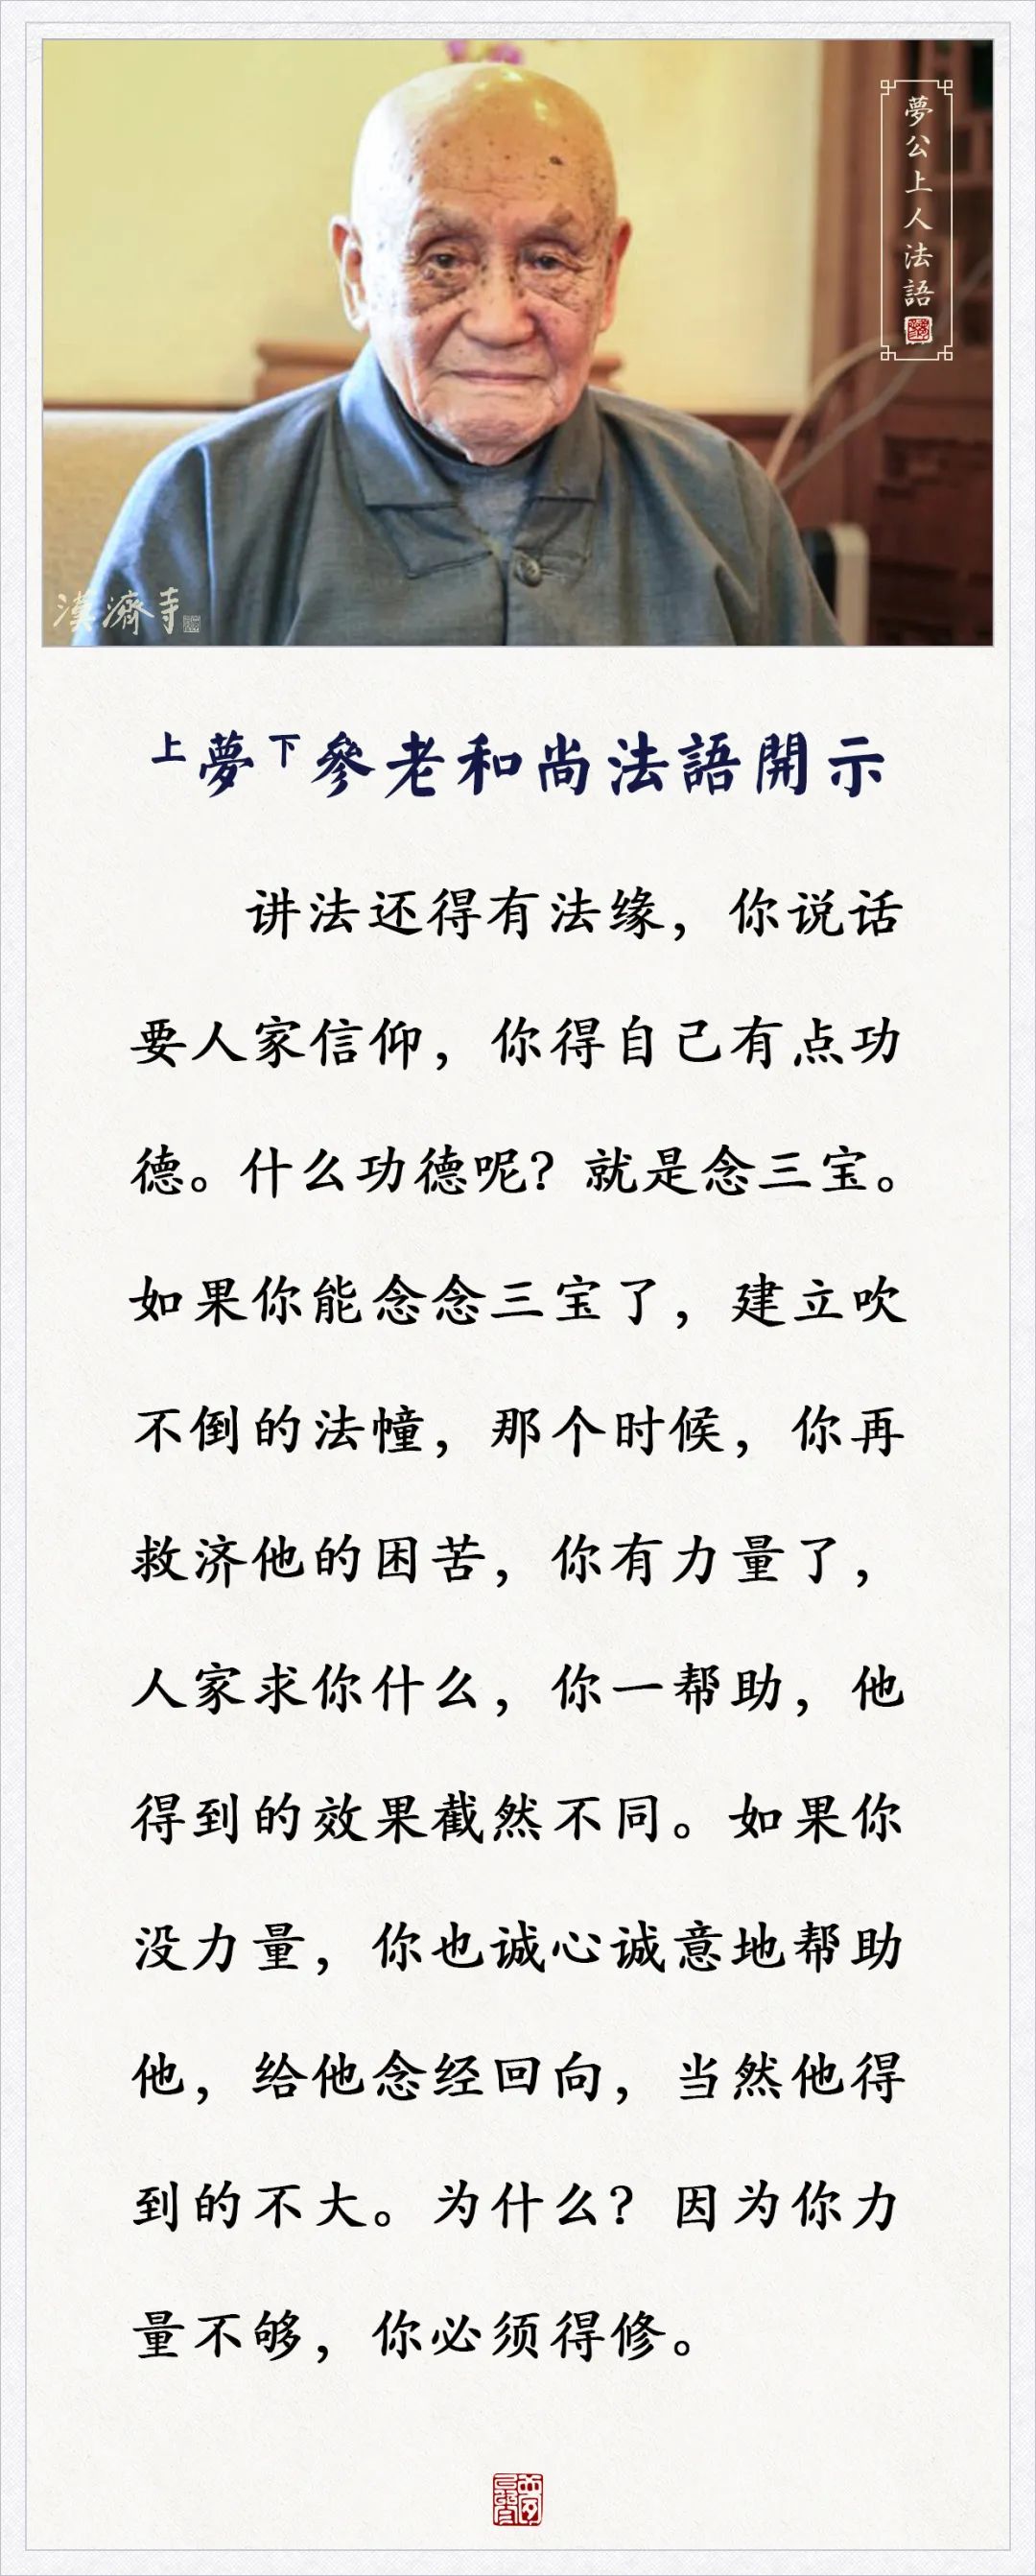 夢公上人法語
漢濟寺
上夢下參老和尚法語開示
讲法还得有法缘，你说话
要人家信仰，你得自己有点功
德。什么功德呢？就是念三宝。
如果你能念念三宝了，建立吹
不倒的法幢，那个时候，你再
救济他的困苦，你有力量了，
人家求你什么，你一帮助，他
得到的效果截然不同。如果你
没力量，你也诚心诚意地帮助
他，给他念经回向，当然他得
到的不大。为什么？因为你力
量不够，你必须得修。